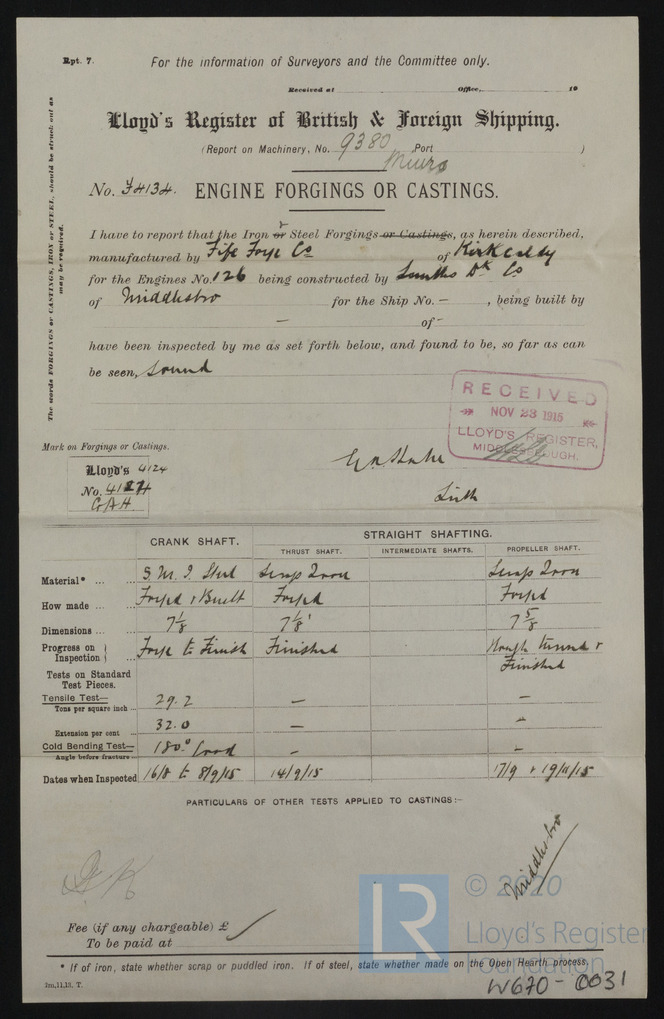 Rpt. 7.
For the information of Surveyors and the Committee only.
Received at Office, 19
Lloyd's Register of British & Foreign Shipping.
(Report on Machinery, No. 9380 Port )
No. 4134. ENGINE FORGINGS OR CASTINGS.
The words FORGINGS or CASTINGS, IRON or STEEL, should be struck out as
may be required.
I have to report that the Iron or Steel Forgings or Castings, as herein described,
manufactured by Fife Forge Co of Kirkcaldy
for the Engines No. 126 being constructed by Smiths Dk Co
of Middlesbro for the Ship No. – , being built by
– of –
have been inspected by me as set forth below, and found to be, so far as can
be seen, sound
RECEIVED
NOV 23 1915
LLOYD'S REGISTER,
MIDDLESBROUGH.
Mark on Forgings or Castings.
Lloyd's 4124
No. 4124
GAH
Leith
CRANK SHAFT. STRAIGHT SHAFTING.
THRUST SHAFT. INTERMEDIATE SHAFTS. PROPELLER SHAFT.
Material* ... ... S. M. I. Steel Scrap Iron Scrap Iron
How made ... ... Forged & Built Forged Forged
Dimensions ... ... 7 1/8 7 1/8" 7 5/8
Progress on Inspection } ... Forge to Finish Finished Rough turned & Finished
Tests on Standard
Test Pieces.
Tensile Test—
Tons per square inch ... 29.2 – –
Extension per cent ... 32.0 – –
Cold Bending Test—
Angle before fracture 180° Good – –
Dates when Inspected 16/8 to 8/9/15 14/9/15 17/9 & 19/11/15
PARTICULARS OF OTHER TESTS APPLIED TO CASTINGS:–
Middlesbro
© 2020
LR
Lloyd's Register
Foundation
Fee (if any chargeable) £
To be paid at
* If of iron, state whether scrap or puddled iron. If of steel, state whether made on the Open Hearth process.
1m,11,13. T.
W670-0031